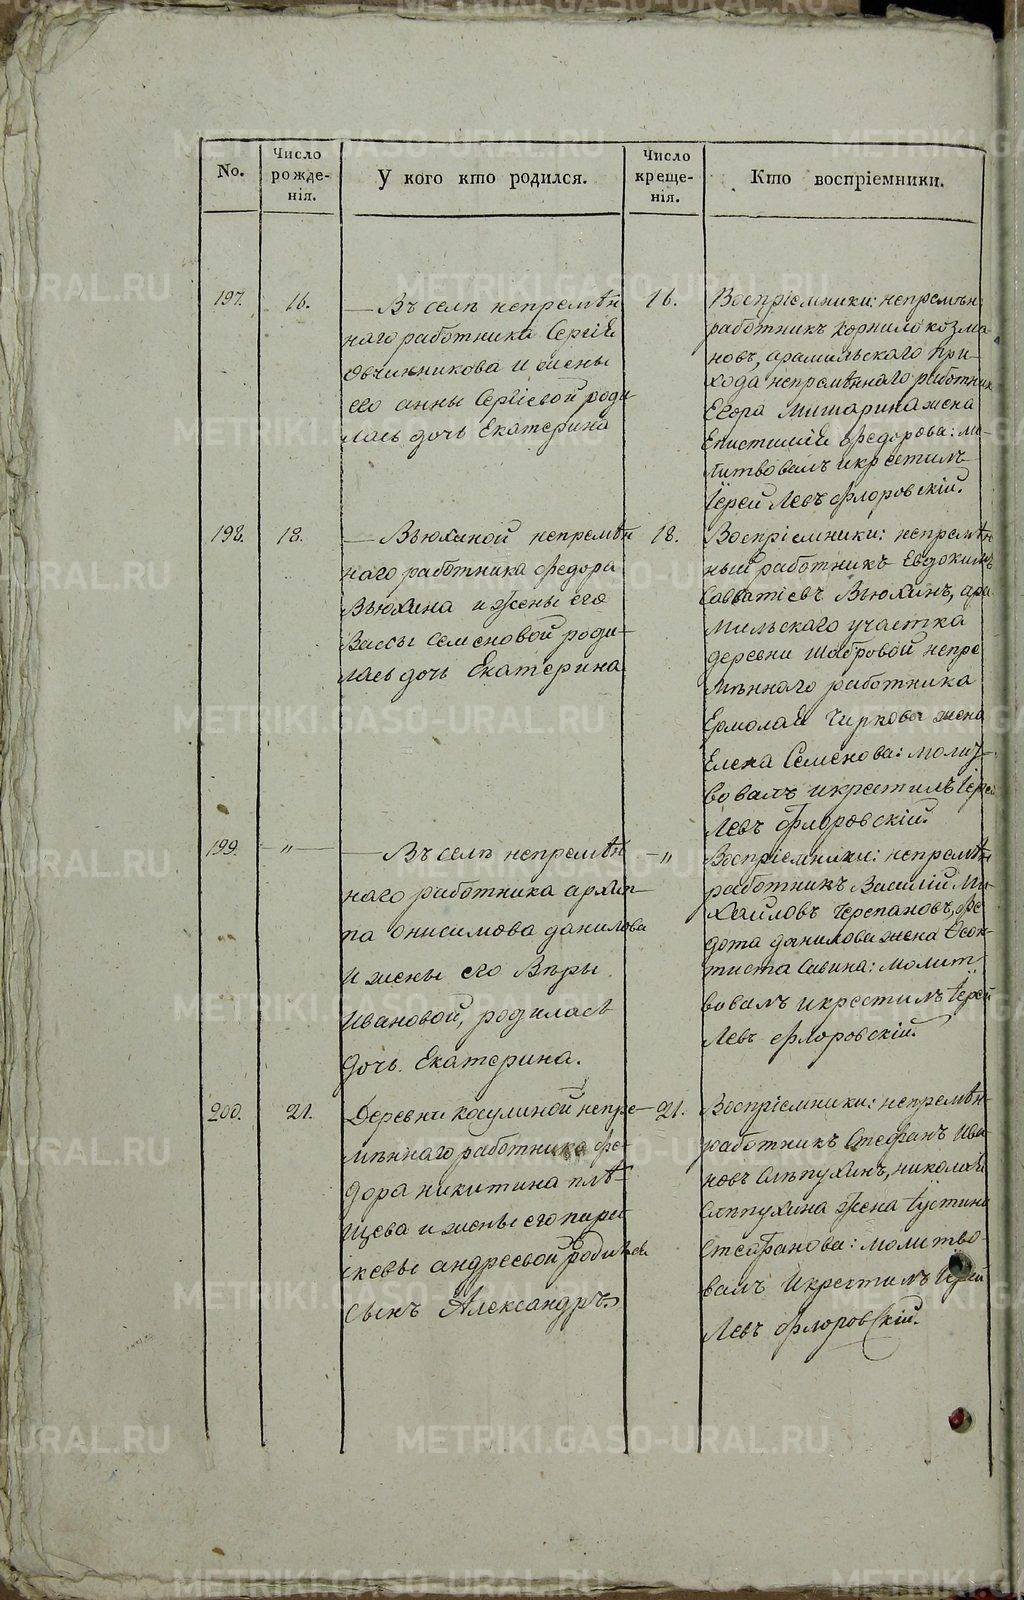 No.
Число рожде-
нія.
У кого кто родился.
Число креще-
нія.
Кто воспріемники.
197.
16.
— Въ селѣ непремѣн
наго работника Сергѣя
Овчинникова и жены
его анны Сергіевой роди
лась дочь Екатерина
16.
Воспріемники: непремѣн:
работникъ Корнило козма
новъ, арамильскаго при-
хода непремѣннаго работник
Егора Мишарина жена
Епистимія Федорова: мо-
литвовалъ и крестилъ
Іерей Левъ Флоровскій.
198.
18.
— Вьюхиной непремѣн
наго работника Федора
Вьюхина и жены его
Вассы Семеновой роди-
лась дочь Екатерина
18.
Воспріемники: непремѣн
ный работникъ Евдокимъ
Савватіевъ Вьюхинъ, ара
мильскаго участка
деревни Шабровой непре
мѣннаго работника
Ермолая Чиркова жена
Елена Семенова: молит-
вовалъ и крестилъ Іерей
Левъ Флоровскій.
199.
— „ —
— Въ селѣ непремѣн
наго работника архип-
па онисимова данилова
и жены его Вѣры
Ивановой, родилась
дочь Екатерина.
— „
Воспріемники: непремѣн
работникъ Василій Ми-
хайловъ Черепановъ, Фе
дота данилова жена Феок-
тиста Савина: молит-
вовалъ и крестилъ Іерей
Левъ Флоровскій.
200.
21.
Деревни косулиной непре-
мѣннаго работника Фе-
дора никитина плѣ-
щева и жены его пара
скевы андреевой родился
сынъ Александръ
21.
Воспріемники: непремѣн
работникъ Стефанъ Ива
новъ Слѣпухинъ, николая
Слѣпухина жена Іустина
Стефанова: молитво-
валъ и крестилъ Іерей
Левъ Флоровскій.
METRIKI.GASO-URAL.RU